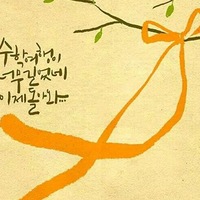 수학여행이
너무길었네
이제돌아와...